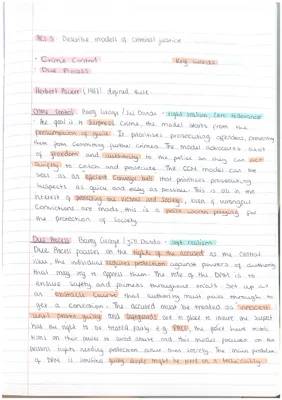 AC1.3 Describe models of criminal justice
• Crime Control Key words
• Due Process
Herbert Packer (1968) defined these
Crime Control - right realism, zero tolerance
• The goal is to suppress crime, the model starts from the
presumption of guilt. It prioritises prosecuting offenders, preventing
them from committing further crimes. The model advocates a lot
of freedom and authority to the police so they can act
to catch and prosecute. The CCM model can be
seen as an efficient conveyor belt that prioritises prosecuting
suspects as quick and easy as possible. This is all in the
interest of protecting the victims and society, even if wrongful
convictions are made, this is a price worth paying for
the protection of society.
Due Process - left realism
Due Process focuses on the rights of the accused as the central
idea, the individual requires protection against powers of authority
that may try to oppress them. The role of the DPM is to
ensure safety and fairness throughout trials. Set up as
an obstacle course that authority must pass through to
get a conviction. The accused must be treated as innocent
until proven guilty and safeguards are in place to insure the suspect
has the right to be treated fairly e.g. PACE, the police have restric
tions on their power to avoid abuse and this model focuses on the
persons rights needing protection above ones society. The main problem
of DPM is limited guilty people might be freed on a technicality